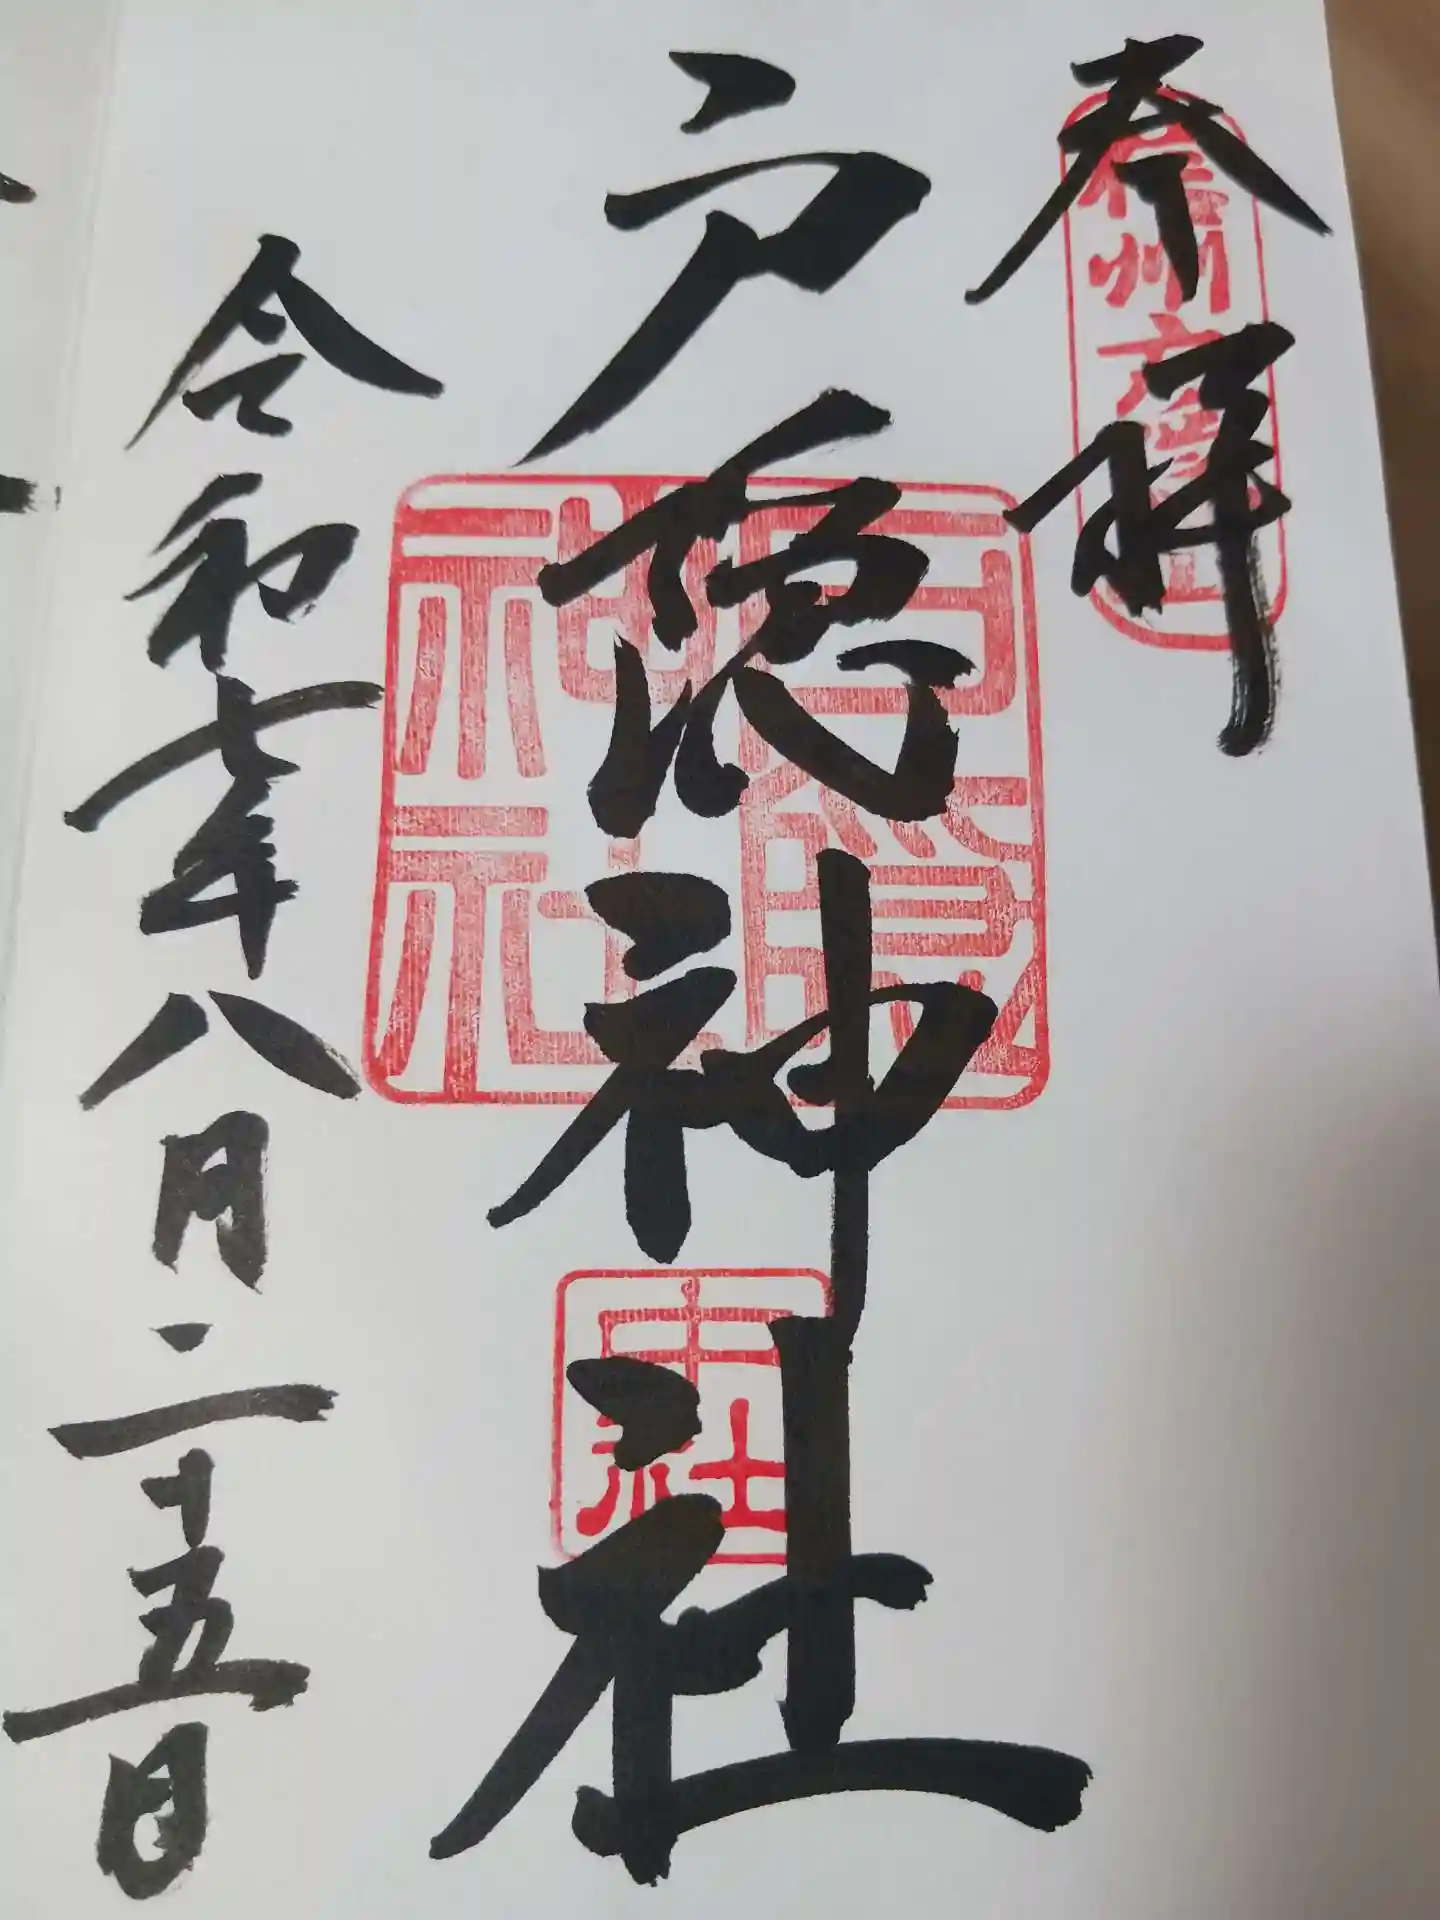 奉拝
信州戸隠山
戸隠神社
戸隠神社
中社
令和七年八月二十五日